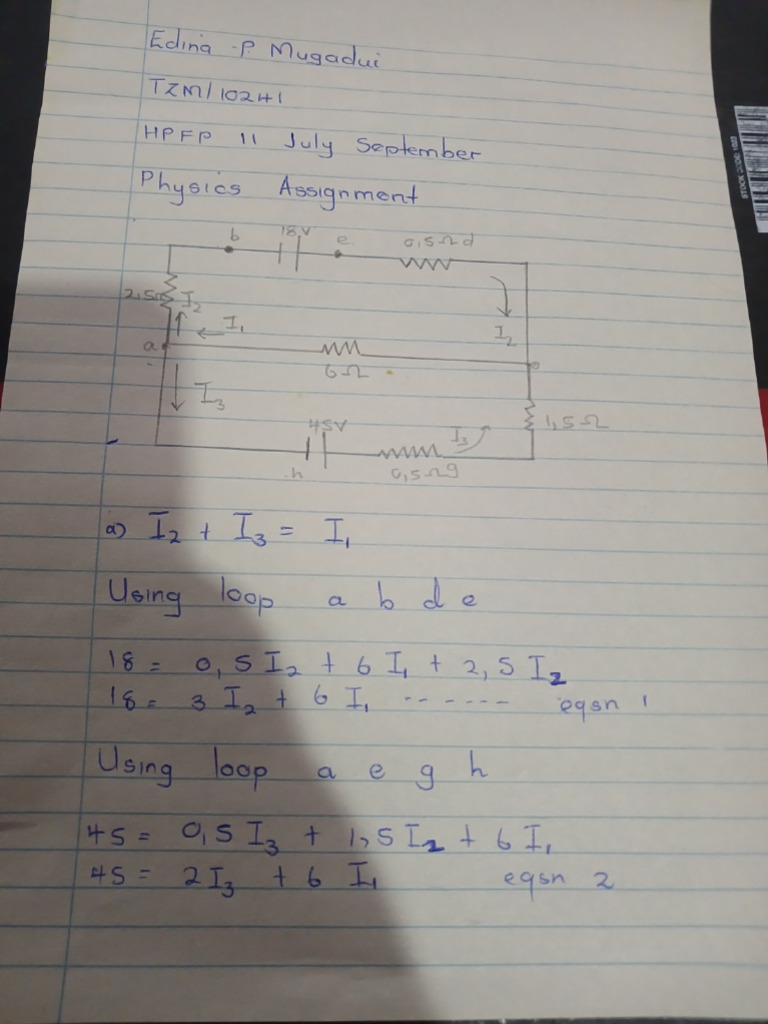 Edina .P. Mugadui
TZM/10241
HPFP 11 July September
Physics Assignment
b 18V e 0,5Ω d
2,5Ω I₂ I₂
I₁
a
6Ω
I₃
45V I₃ 1,5Ω
h 0,5Ω g
a) I₂ + I₃ = I₁
Using loop a b d e
18 = 0,5 I₂ + 6 I₁ + 2,5 I₂
18 = 3 I₂ + 6 I₁ ------- eqsn 1
Using loop a e g h
45 = 0,5 I₃ + 1,5 I₂ + 6 I₁
45 = 2 I₃ + 6 I₁ eqsn 2